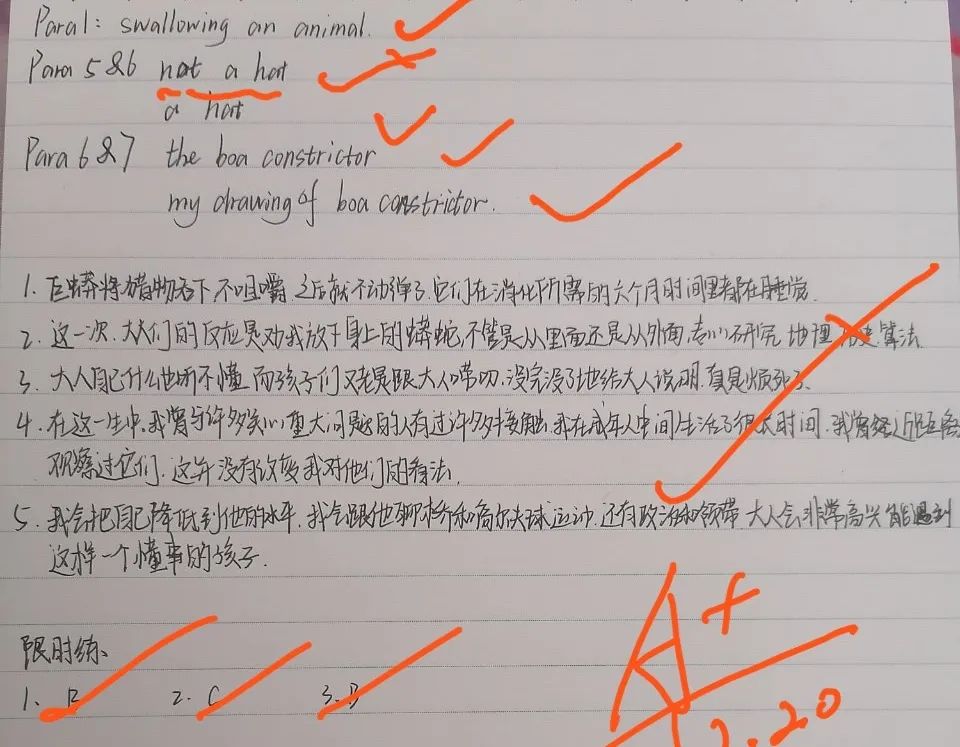 Para1: swallowing an animal.
Para 5&6 not a hat
a hat
Para 6&7 the boa constrictor
my drawing of boa constrictor.
1. 巨蟒将猎物吞下不咀嚼 之后就不动弹了.它们在消化所需的六个月时间里都在睡觉.
2. 这一次.大人们的反应是劝我放下身上的蟒蛇,不管是从里面还是从外面,专心研究 地理 历史 算法.
3. 大人自己什么也听不懂.而孩子们又老是跟大人唠叨.没完没了地给大人说明.真是烦死了.
4. 在这一生中.我曾与许多关心重大问题的人有过许多接触.我在成年人中间生活了很长时间.我曾经近距离
观察过它们.这并没有改变我对他们的看法.
5. 我会把自己降低到他的水平.我会跟他聊桥和高尔夫球运动.还有政治和领带 大人会非常高兴能遇到
这样一个懂事的孩子.
限时练、
1、B 2. C 3. D
A+
2.20